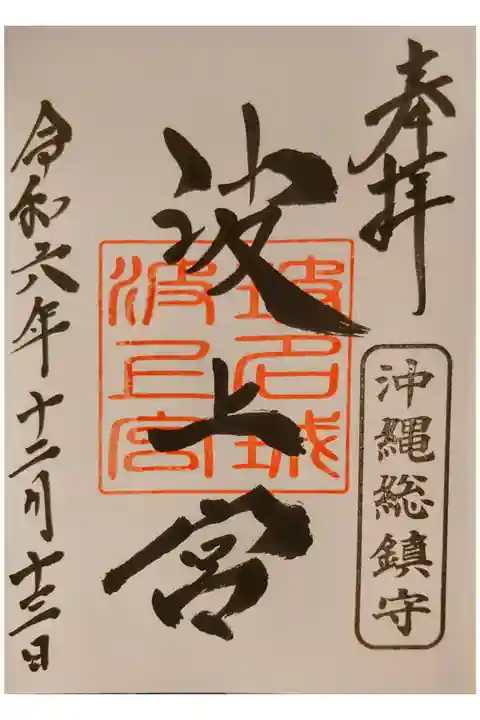 奉拝
沖縄総鎮守
波上宮
名城
波上宮
令和六年十二月十三日